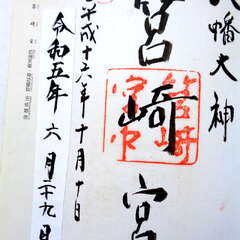 八幡大神
筥崎宮
平成十六年十月十日
令和五年六月二十九日